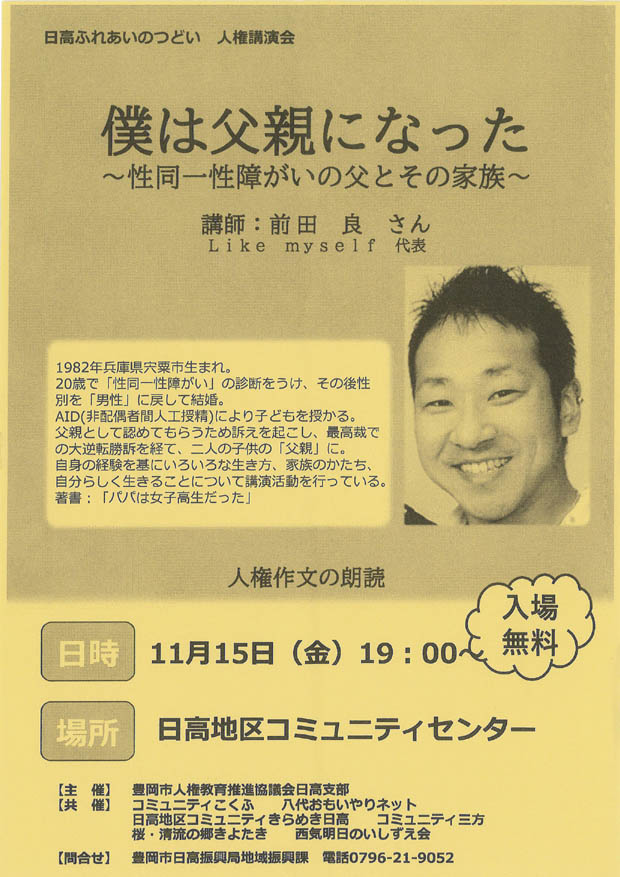 日高ふれあいのつどい　人権講演会
僕は父親になった
～性同一性障がいの父とその家族～
講師：前田　良　さん
Like myself 代表
1982年兵庫県宍粟市生まれ。
20歳で「性同一性障がい」の診断をうけ、その後性
別を「男性」に戻して結婚。
AID(非配偶者間人工授精)により子どもを授かる。
父親として認めてもらうため訴えを起こし、最高裁で
の大逆転勝訴を経て、二人の子供の「父親」に。
自身の経験を基にいろいろな生き方、家族のかたち、
自分らしく生きることについて講演活動を行っている。
著書：「パパは女子高生だった」
人権作文の朗読
入場
無料
日時　11月15日（金）19：00～
場所　日高地区コミュニティセンター
【主　催】　豊岡市人権教育推進協議会日高支部
【共　催】　コミュニティこくふ　　八代おもいやりネット
日高地区コミュニティきらめき日高　　コミュニティ三方
桜・清流の郷きよたき　　西気明日のいしずえ会
【問合せ】　豊岡市日高振興局地域振興課　電話0796-21-9052